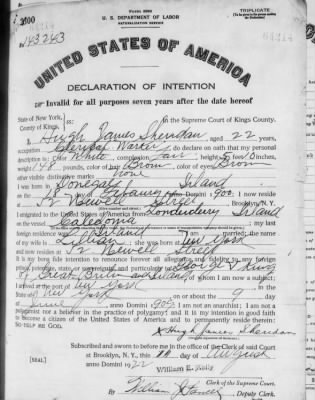 TRIPLICATE
U. S. DEPARTMENT OF LABOR
NATURALIZATION SERVICE
UNITED STATES OF AMERICA
DECLARATION OF INTENTION
Invalid for all purposes seven years after the date hereof
State of New York,
County of Kings, ss: In the Supreme Court of Kings County.
I, Hugh James Sheridan, aged 22 years,
occupation Clerical Worker, do declare on oath that my personal
description is: Color White, complexion Fair, height feet inches,
weight pounds, color of hair Brown, color of eyes Brown
other visible distinctive marks none
I was born in Donegal Ireland
on the day of February, anno Domini 1900; I now reside
at Newell Street, Brooklyn, N. Y.
I emigrated to the United States of America from Londonderry Ireland
on the vessel Caledonia; my last
foreign residence was Ireland; I am married; the name
of my wife is Lillian; she was born at New York
and now resides at Newell Street
It is my bona fide intention to renounce forever all allegiance and fidelity to any foreign
prince, potentate, state, or sovereignty, and particularly to George V King
of Great Britain and Ireland, of whom I am now a subject;
I arrived at the port of New York, in the
State of New York, on or about the 9 day
of June, anno Domini; I am not an anarchist; I am not a
polygamist nor a believer in the practice of polygamy; and it is my intention in good faith
to become a citizen of the United States of America and to permanently reside therein:
SO HELP ME GOD.
Hugh James Sheridan
Subscribed and sworn to before me in the office of the Clerk of said Court
at Brooklyn, N. Y., this day of August
[SEAL] anno Domini 1922
William E. Kelly
Clerk of the Supreme Court.
By William, Deputy Clerk.